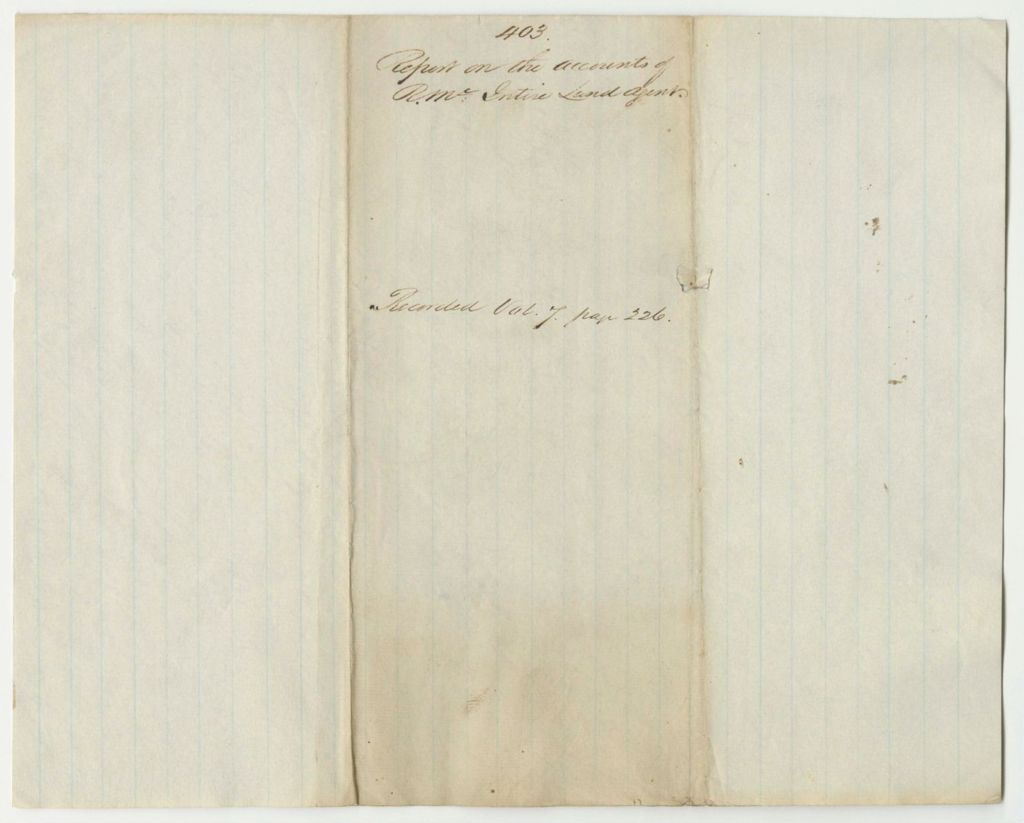 403.
Report on the accounts of
R. Mc. Intire Land Agent.
Recorded Vol. 7. page 226.